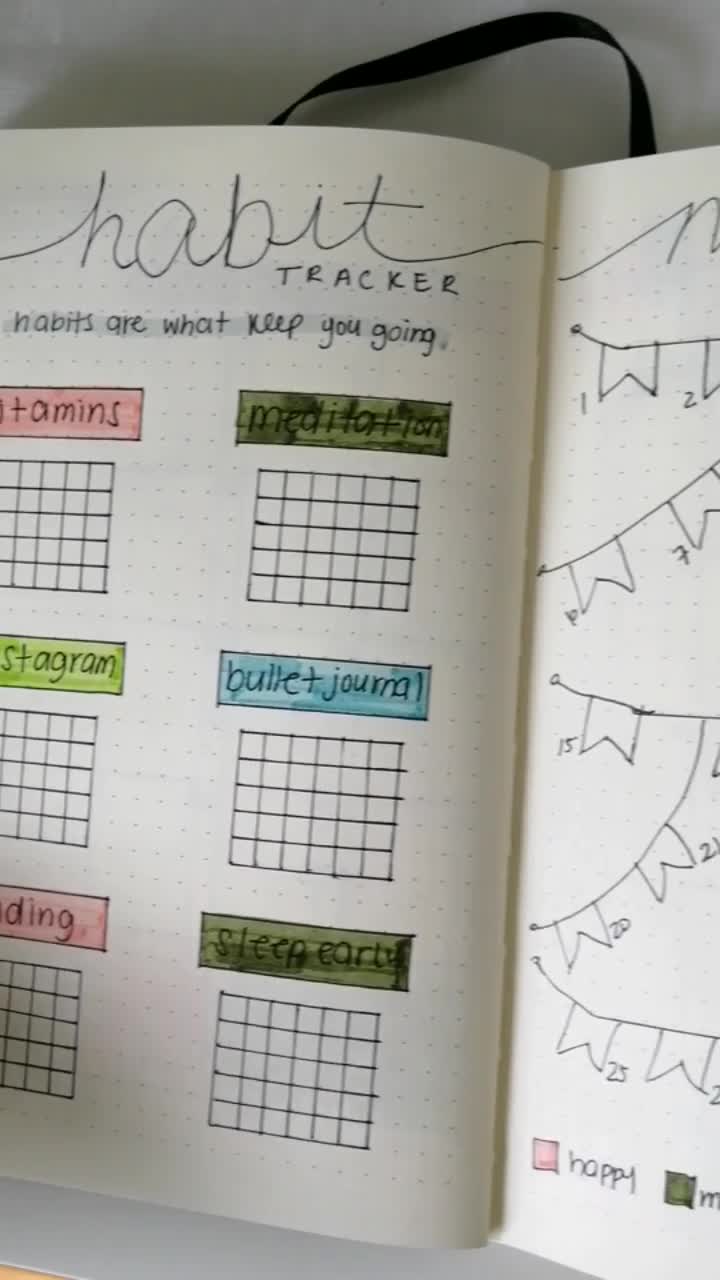 habit
TRACKER
habits are what keep you going.
itamins
meditation
stagram
bullet journal
ding
sleep early
1
2
7
15
21
20
25
2
happy
m